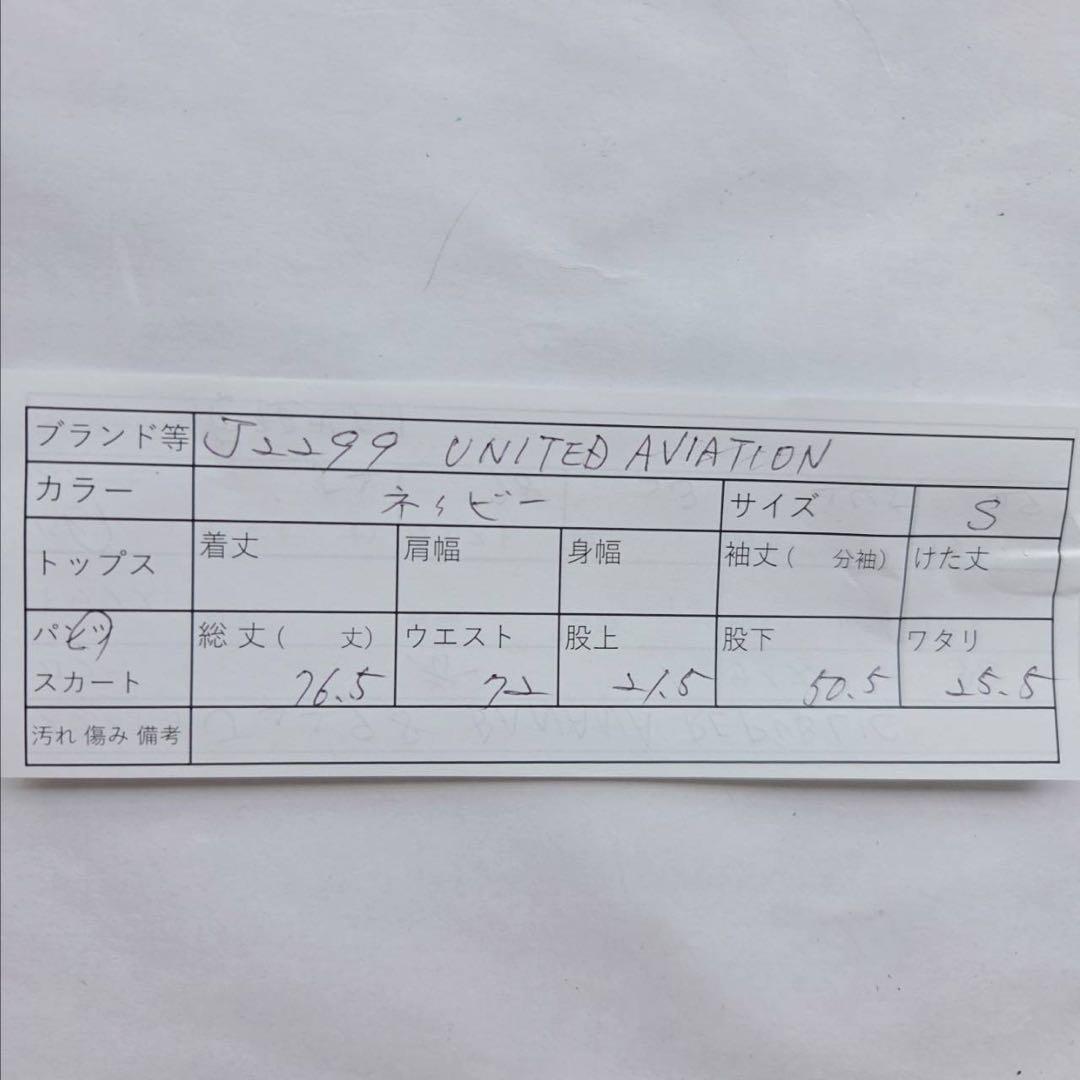 ブランド等 J2299 UNITED AVIATION
カラー ネイビー サイズ S
トップス 着丈 肩幅 身幅 袖丈( 分袖) けた丈
パンツ 総丈( 丈) ウエスト 股上 股下 ワタリ
スカート 76.5 72 21.5 50.5 25.5
汚れ 傷み 備考